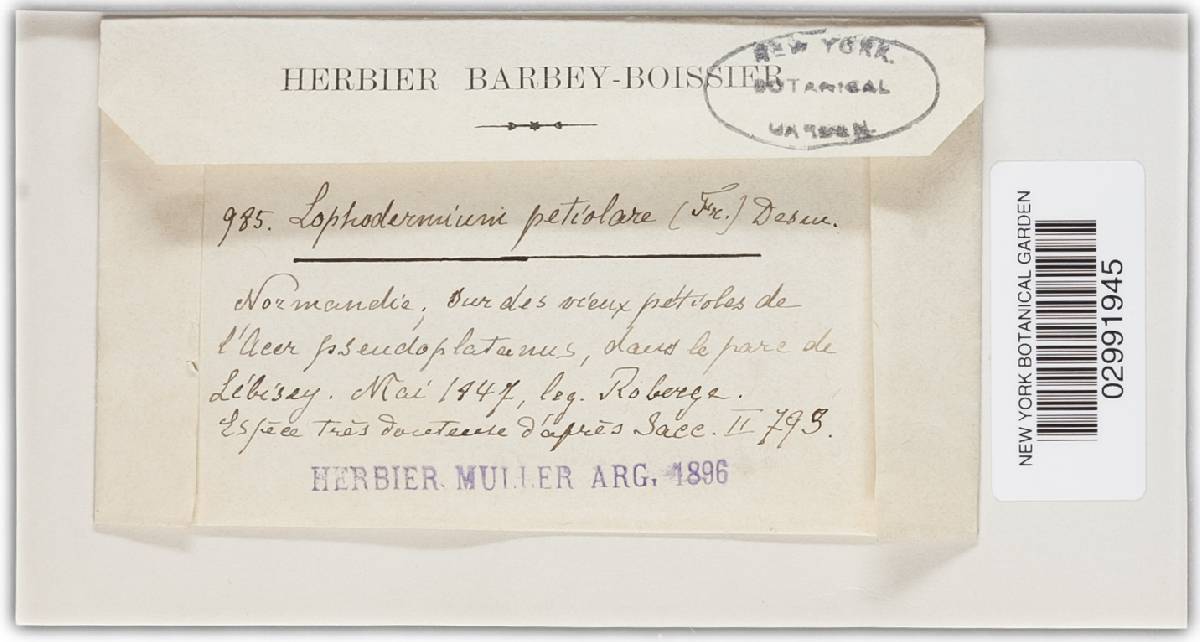 HERBIER BARBEY-BOISSIER
NEW YORK
BOTANICAL
GARDEN
985. Lophodermium petiolare (Fr.) Desm.
Normandie, sur des vieux pétioles de
l'Acer pseudoplatanus, dans le parc de
Lébisey. Mai 1847, leg. Roberge.
Espèce très douteuse d'après Sacc. II 793.
HERBIER MULLER ARG. 1896
NEW YORK BOTANICAL GARDEN
02991945